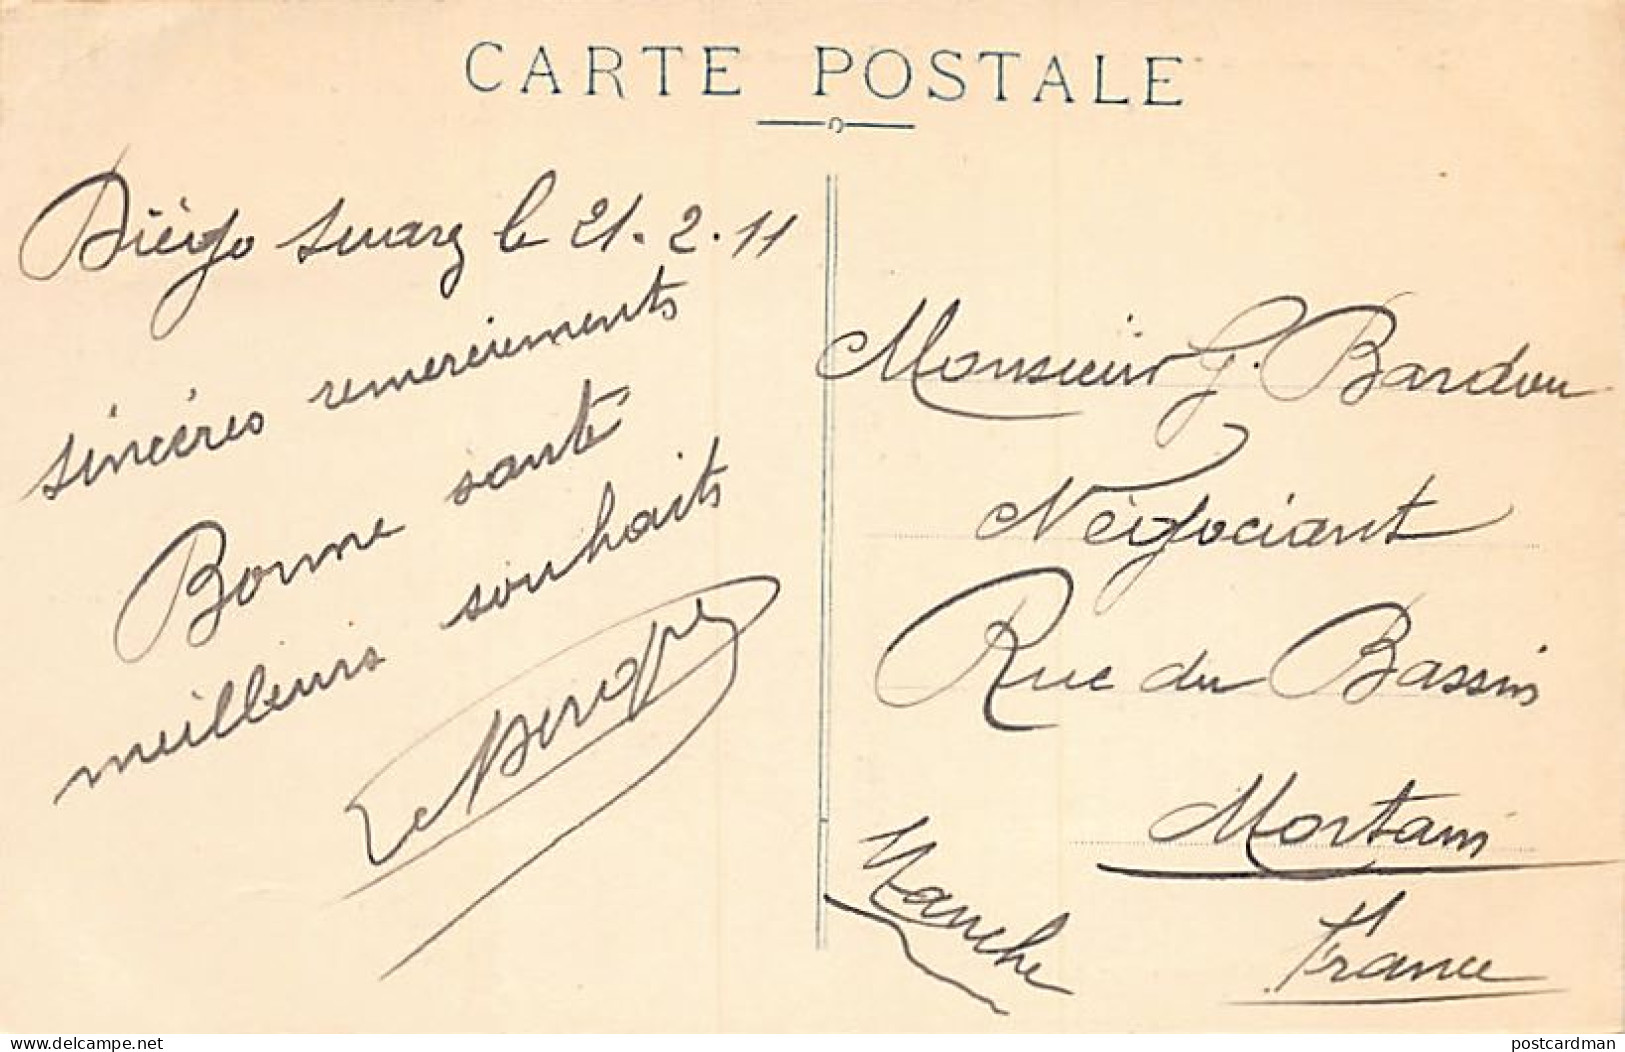 CARTE POSTALE
Diégo Suarez le 21.2.11
sincéres remerciements
Bonne santé
meilleurs souhaits
Monsieur G. Bardou
Négociant
Rue du Bassin
Mortain
Manche
France
www.delcampe.net
postcardman